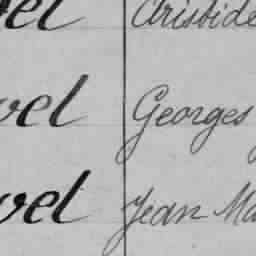 vel Aristide
vel Georges
vel Jean Ma